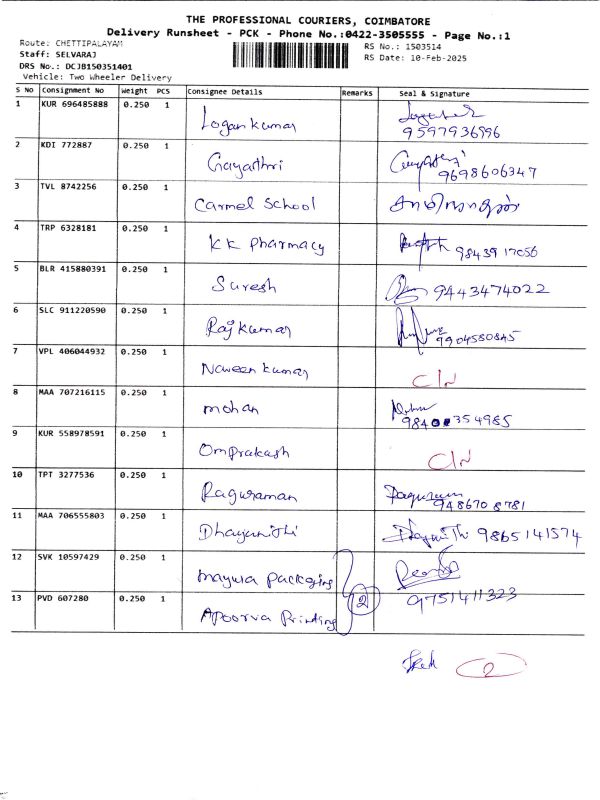 THE PROFESSIONAL COURIERS, COIMBATORE
Delivery Runsheet - PCK - Phone No.:0422-3505555 - Page No.:1
Route: CHETTIPALAYAM
RS No.: 1503514
Staff: SELVARAJ
RS Date: 10-Feb-2025
DRS No.: DCJB150351401
Vehicle: Two Wheeler Delivery
S No Consignment No Weight PCS Consignee Details Remarks Seal & Signature
1 KUR 696485888 0.250 1 Logan kumar
9597936996
2 KDI 772887 0.250 1 Gayathri
9698606347
3 TVL 8742256 0.250 1 Carmel School
4 TRP 6328181 0.250 1 KK Pharmacy 9843917056
5 BLR 415880391 0.250 1 Suresh 9443474022
6 SLC 911220590 0.250 1 Raj Kumar
9904580845
7 VPL 406044932 0.250 1 Naveen kumar C/N
8 MAA 707216115 0.250 1 mohan
9840 354985
9 KUR 558978591 0.250 1 Omprakash C/N
10 TPT 3277536 0.250 1 Raguraman Raguram
948670 8781
11 MAA 706555803 0.250 1 Dhayanithi 9865141574
12 SVK 10597429 0.250 1 mayura packaging
2
13 PVD 607280 0.250 1 Apoorva Printing 9751411323
2